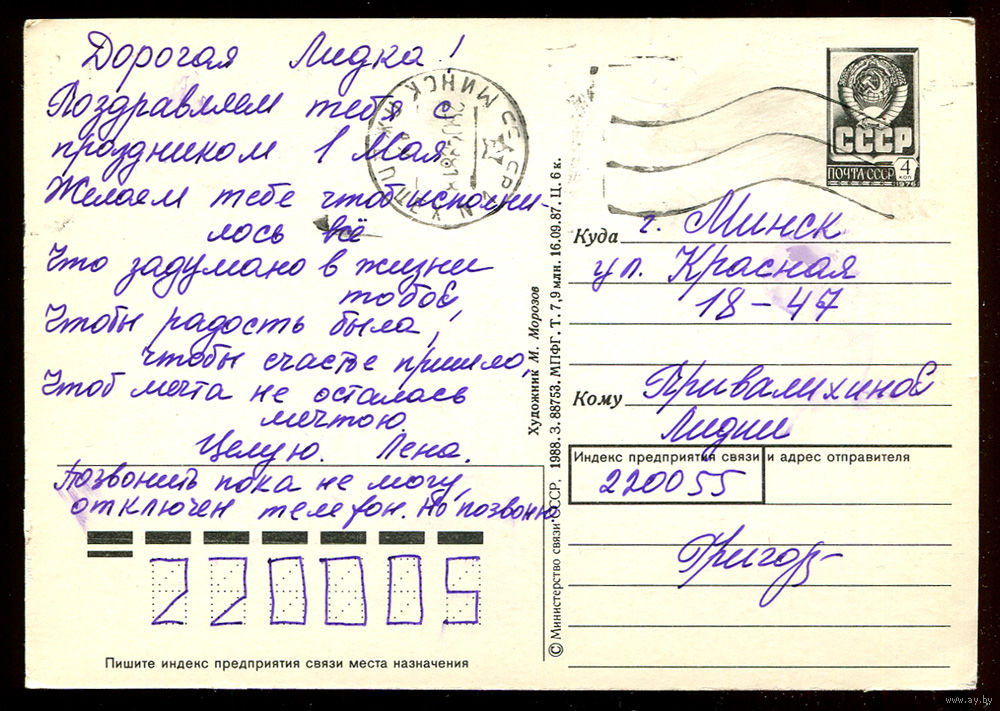 Дорогая Лидка!
Поздравляем тебя с
праздником 1 Мая
Желаем тебе чтоб исполни-
лось всё
Что задумано в жизни
тобой,
Чтобы радость была,
чтобы счастье пришло,
Чтоб мечта не осталась
мечтою.
Целую. Лена.
Позвонить пока не могу,
отключен телефон. Но позвоню
220005
Пишите индекс предприятия связи места назначения
© Министерство связи СССР, 1988. З. 88753. МПФГ. Т. 7,9 млн. 16.09.87. Ц. 6 к.
Художник М. Морозов
МИНСК
СССР
ПОЧТА СССР
4 коп
1976
Куда г. Минск
ул. Красная
18-47
Кому Привалихиной
Лидии
Индекс предприятия связи и адрес отправителя
220055
Григор-
www.ay.by